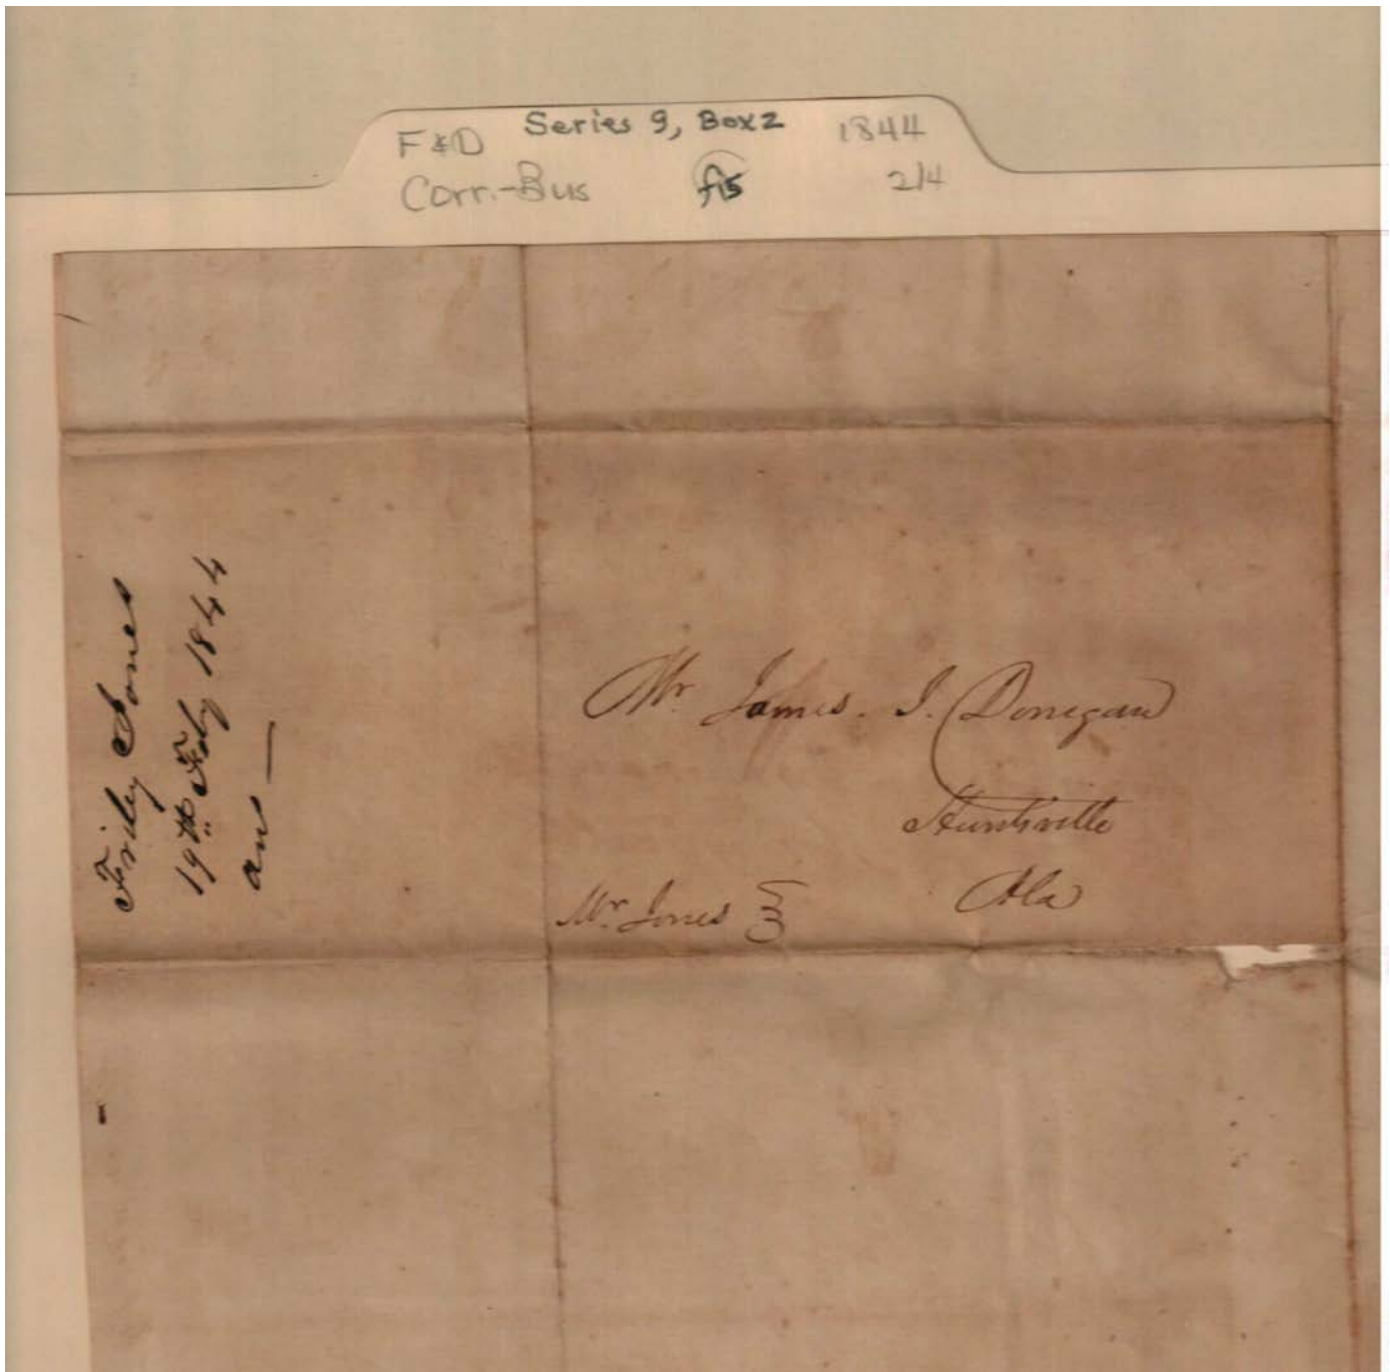 F&D Series 9, Box 2 1844
Corr.-Bus f15 2/4
Friley Jones
19th Feby 1844
an —
Mr James. J. Donegan
Huntsville
Ala
Mr. Jones